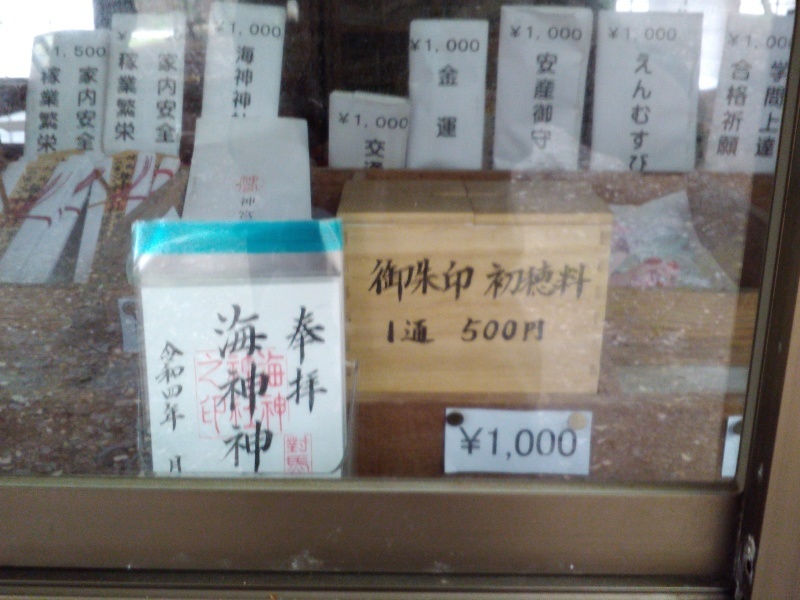 1,500
家内安全
稼業繁栄
¥1,000
家内安全
稼業繁栄
¥1,000
海神神
¥1,000
交
¥1,000
金運
¥1,000
安産御守
¥1,000
えんむすび
¥1,00
学問上達
合格祈願
御朱印 初穂料
1通 500円
奉拝
海神神
令和四年 月
海神
神社
之印
對馬
¥1,000